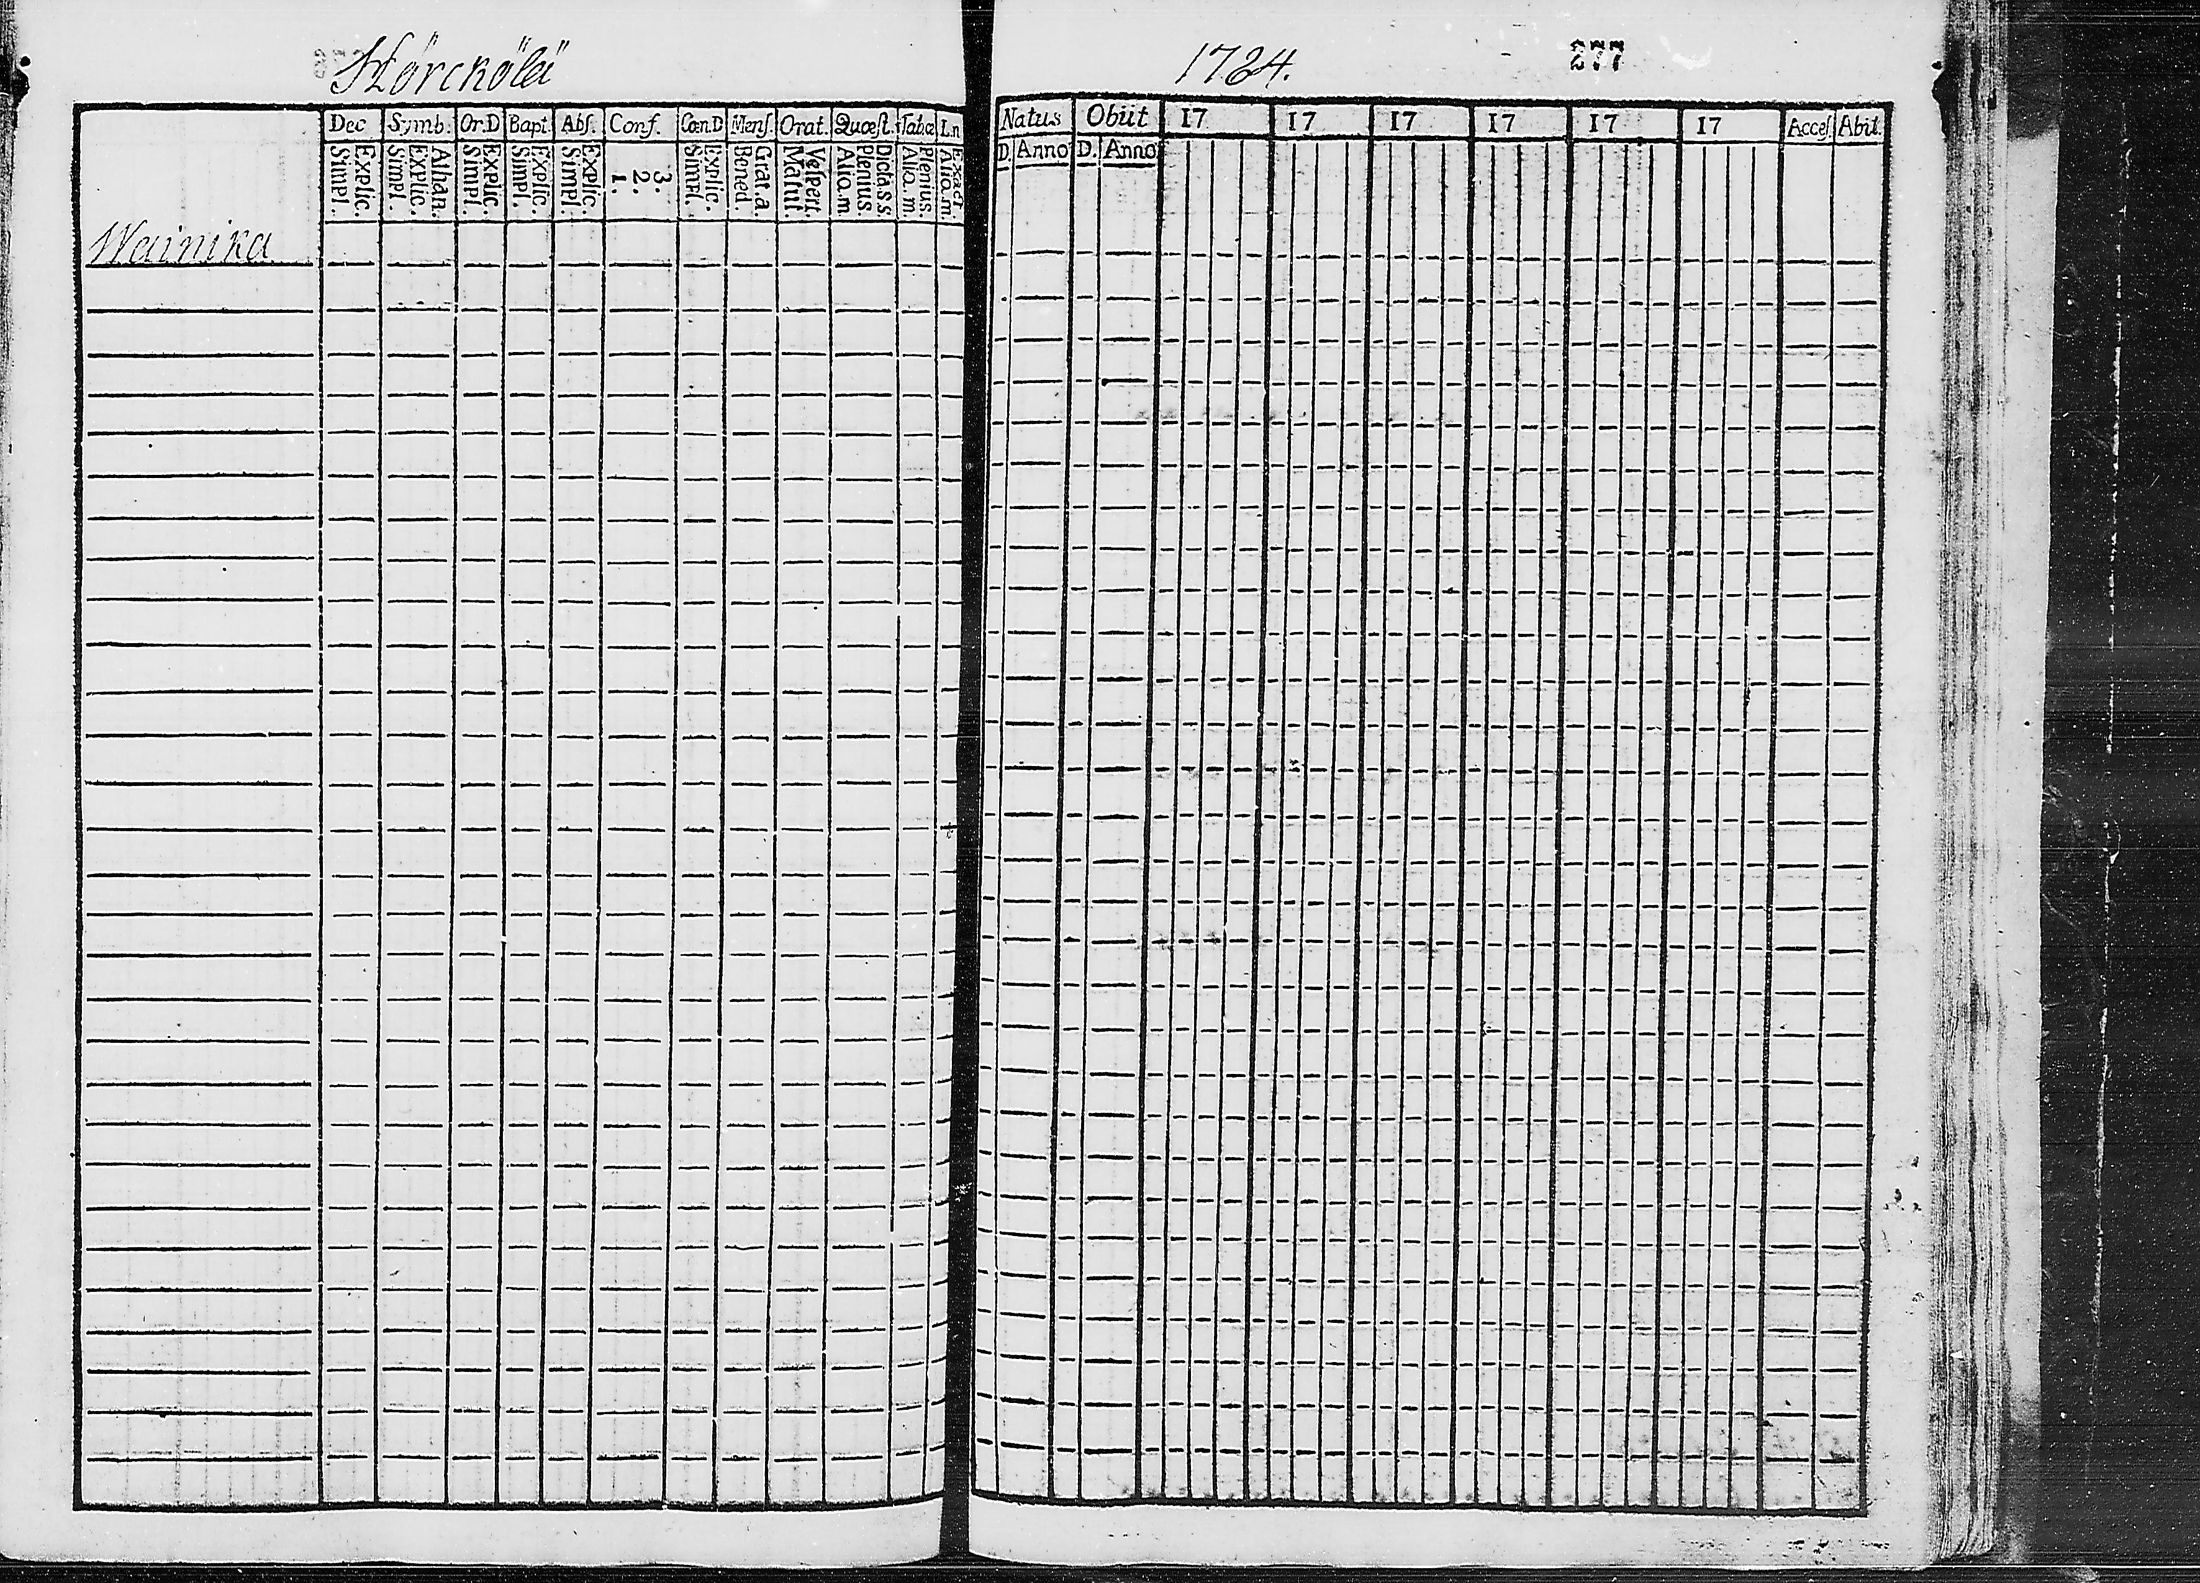 Hörckölä
1724. 277
Dec Symb. Or.D Bapt. Abs. Conf. Cœn.D Mens. Orat. Quæst. Tab.œ Natus Obiit 17 17 17 17 17 17 Acces. Abit.
Explic. Simpl. Athan. Explic. Simpl. Explic. Simpl. Explic. Simpl. Explic. Simpl. 3. 2. 1. Explic. Simpl. Grat.a. Bened. Vespert. Matut. Dict.s.s. Plenius. Alio.m. Plenius. Alio.m. Exact. Alio.m. D. Anno D. Anno
Wainika